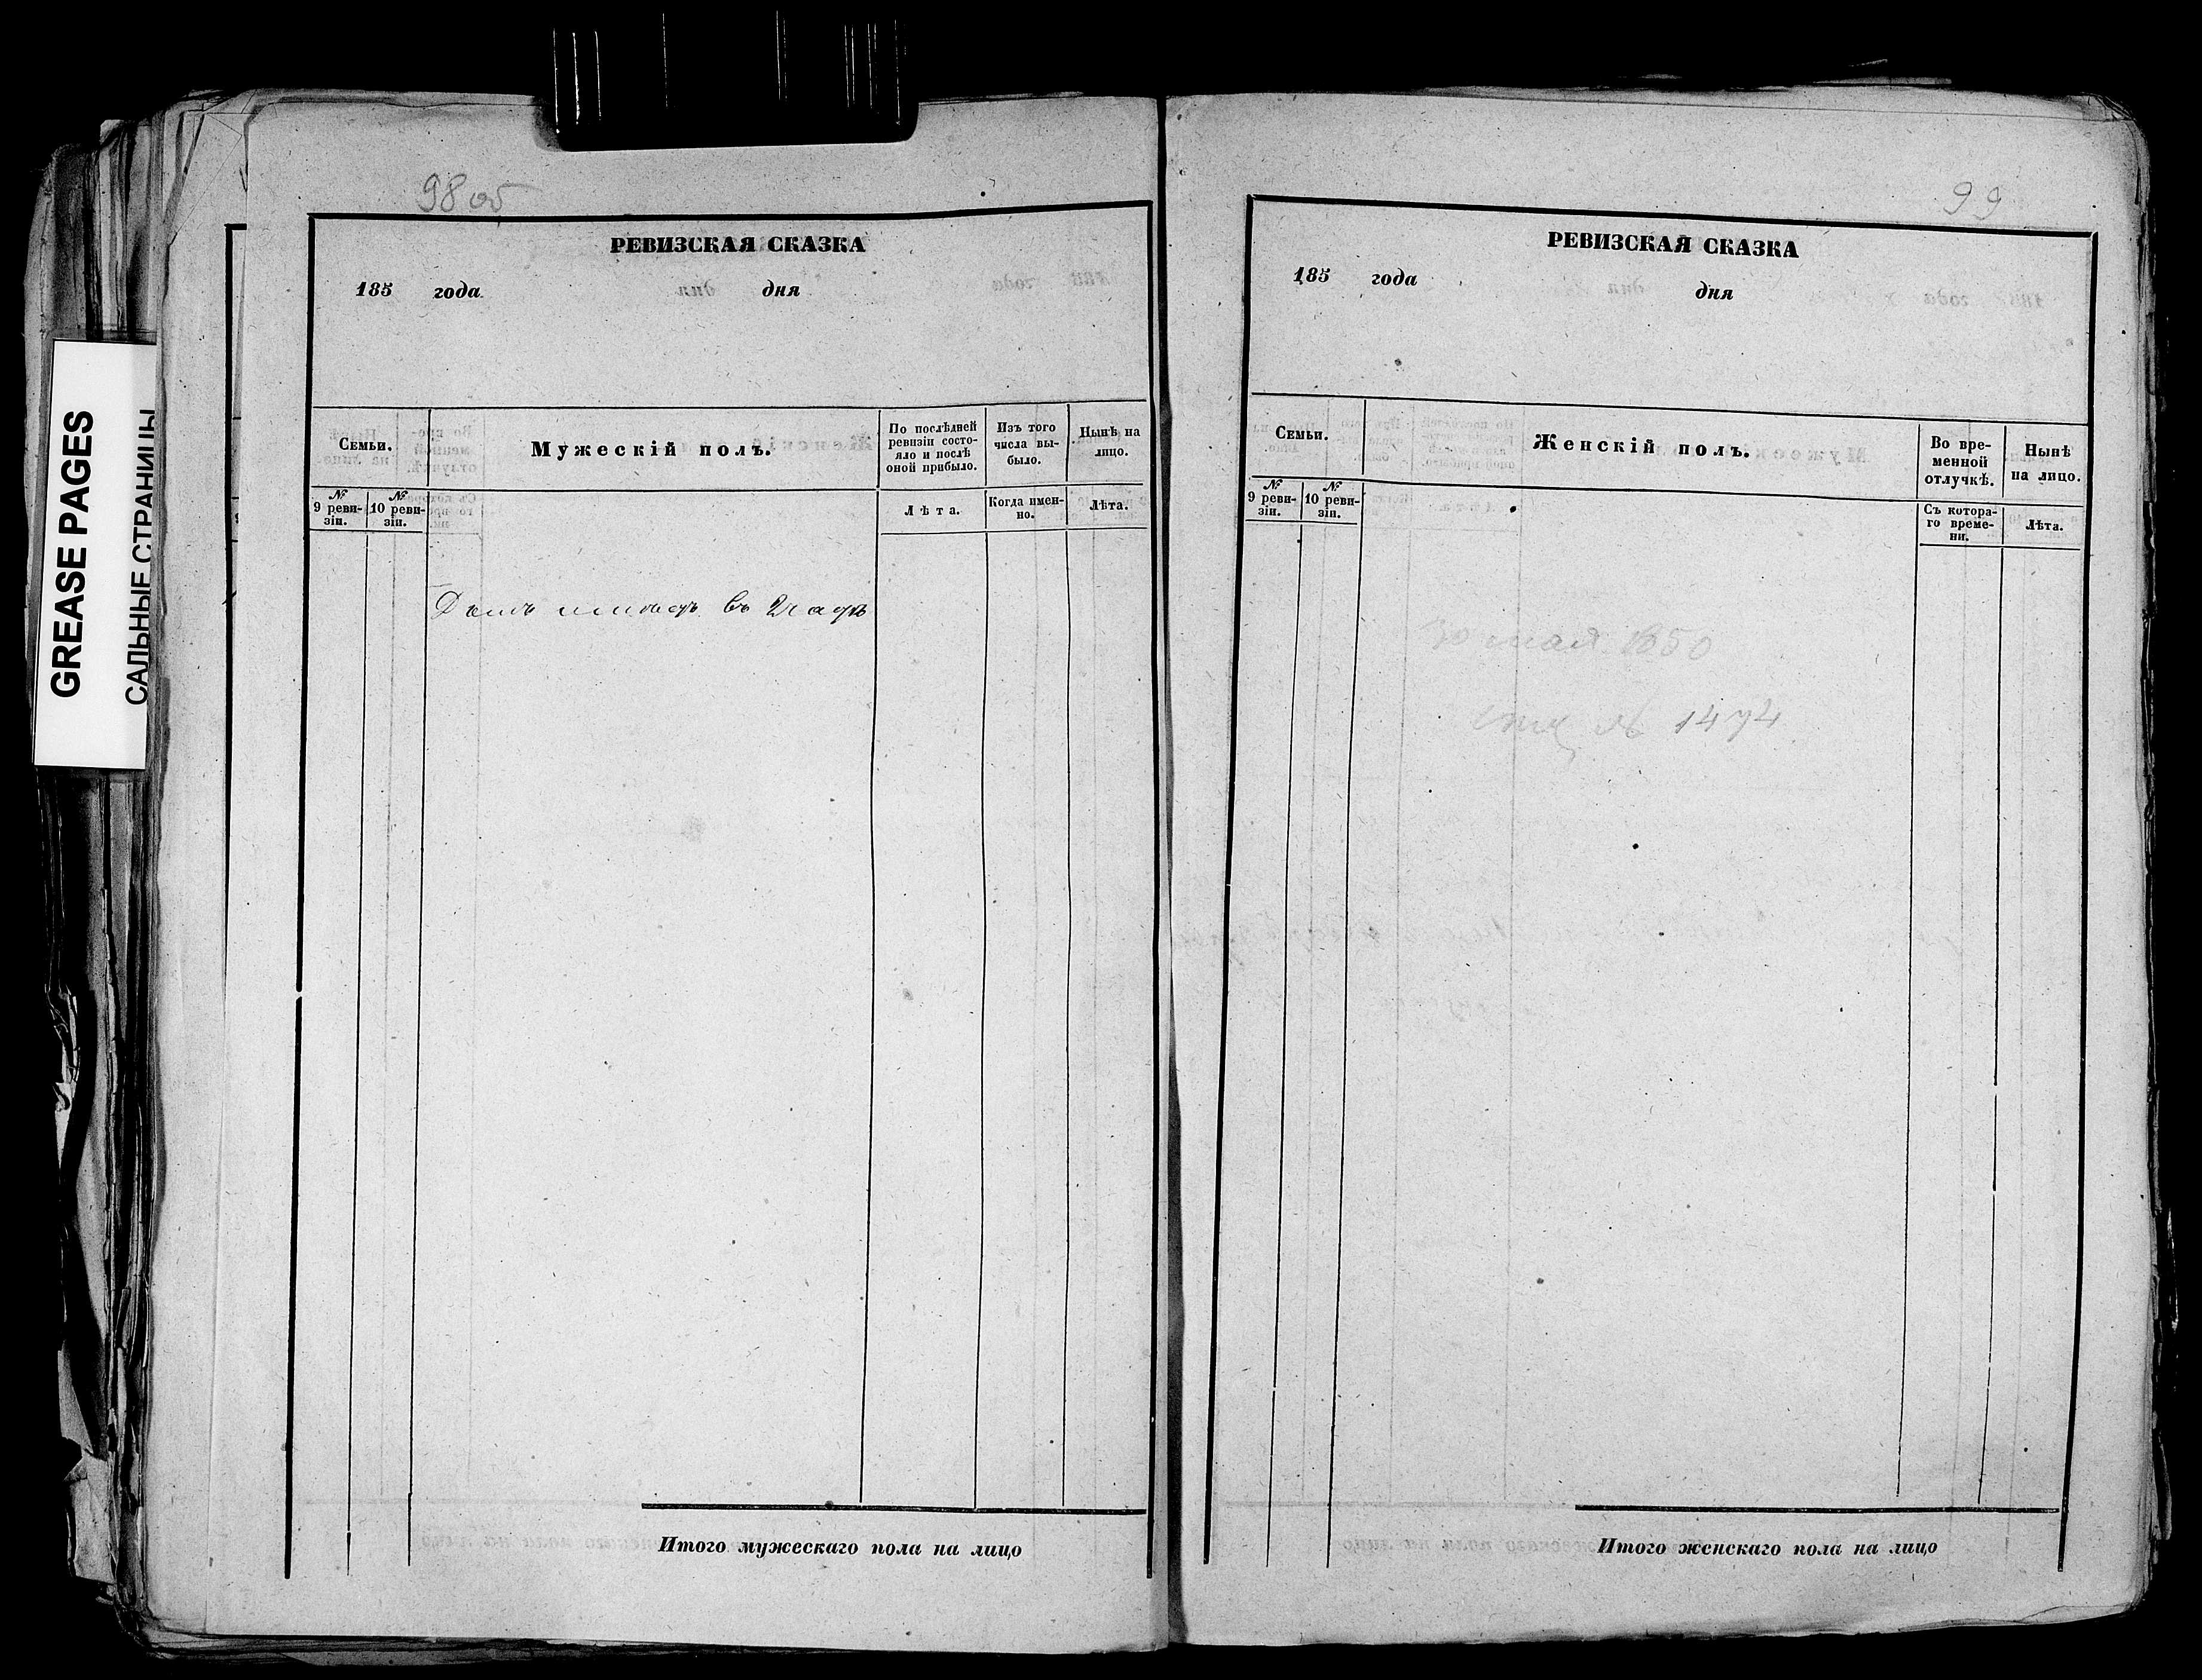 GREASE PAGES
САЛЬНЫЕ СТРАНИЦЫ
98 об
РЕВИЗСКАЯ СКАЗКА
185 года дня
Семьи.
Мужескій полъ.
По послѣдней
ревизіи состо-
яло и послѣ
оной прибыло.
Изъ того
числа вы-
было.
Нынѣ на
лицо.
№
9 реви-
зіи.
№
10 реви-
зіи.
Лѣта.
Когда имен-
но.
Лѣта.
въ
Итого мужескаго пола на лицо
99
РЕВИЗСКАЯ СКАЗКА
185 года
дня
Семьи.
Женскій полъ.
Во вре-
менной
отлучкѣ.
Нынѣ
на лицо.
№
9 реви-
зіи.
№
10 реви-
зіи.
Съ котора-
го време-
ни.
Лѣта.
мая 1850
№ 1474
Итого женскаго пола на лицо